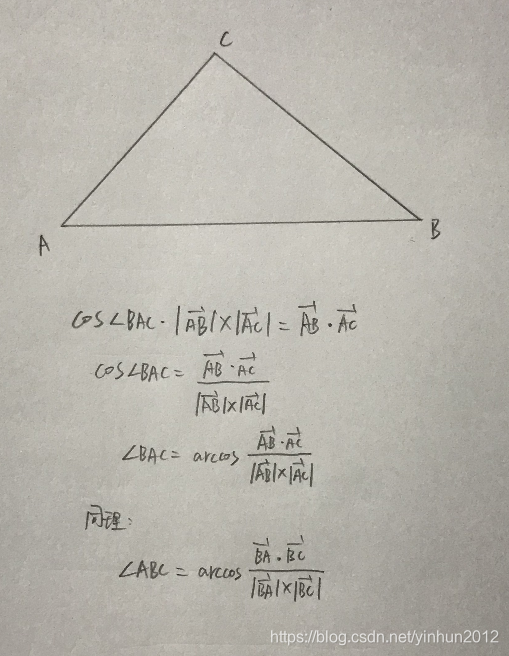 C
A
B
cos∠BAC · |\overrightarrow{AB}|×|\overrightarrow{AC}| = \overrightarrow{AB} · \overrightarrow{AC}
cos∠BAC = \frac{\overrightarrow{AB} · \overrightarrow{AC}}{|\overrightarrow{AB}|×|\overrightarrow{AC}|}
∠BAC = arccos \frac{\overrightarrow{AB} · \overrightarrow{AC}}{|\overrightarrow{AB}|×|\overrightarrow{AC}|}
同理:
∠ABC = arccos \frac{\overrightarrow{BA} · \overrightarrow{BC}}{|\overrightarrow{BA}|×|\overrightarrow{BC}|}
https://blog.csdn.net/yinhun2012